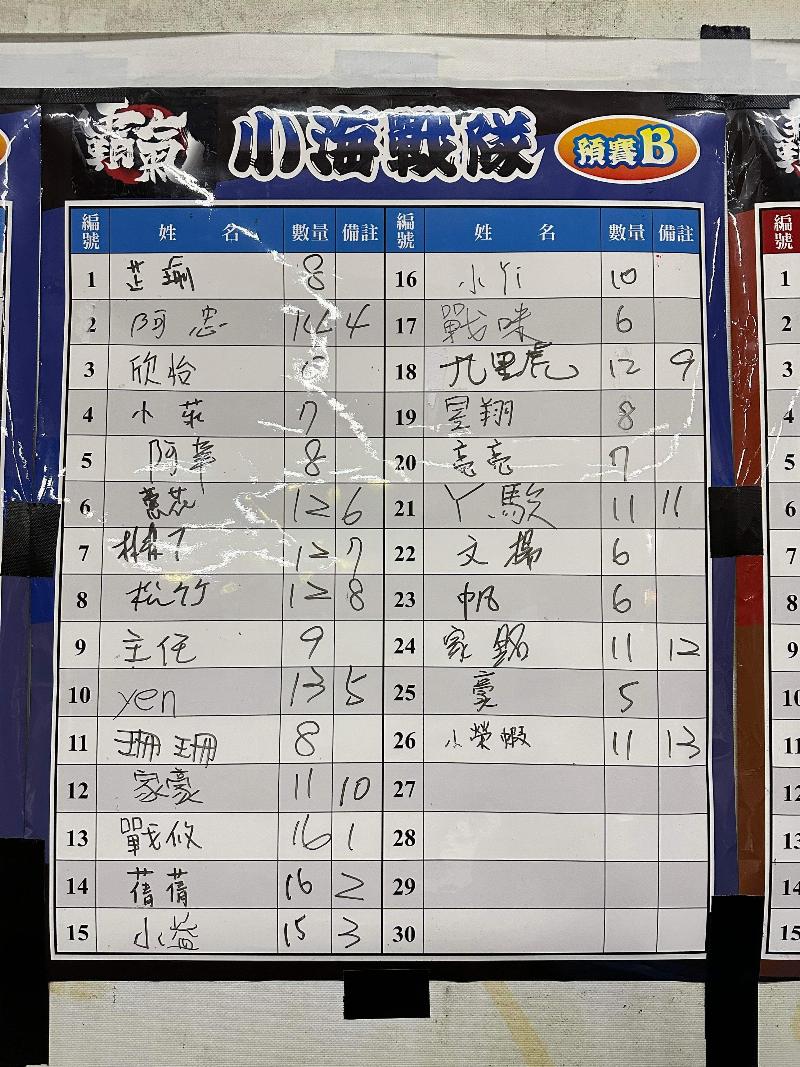 霸氣 小海戰隊 預賽B
編號 姓名 數量 備註
1 芷瑜 8
2 阿忠 14 4
3 欣怡
4 小菜 7
5 阿華 8
6 蕙茹 12 6
7 12 7
8 松竹 12 8
9 主任 9
10 yen 13 5
11 珊珊 8
12 家豪 11 10
13 戰攸 16 1
14 蒨蒨 16 2
15 小益 15 3
編號 姓名 數量 備註
16 小Yi 10
17 戰咪 6
18 九里虎 12 9
19 昱翔 8
20 亮亮 7
21 丫駿 11 11
22 文揚 6
23 帆 6
24 家銘 11 12
25 豪 5
26 小榮蝦 11 13
27
28
29
30
1
2
3
4
5
6
7
8
9
10
11
12
13
14
15